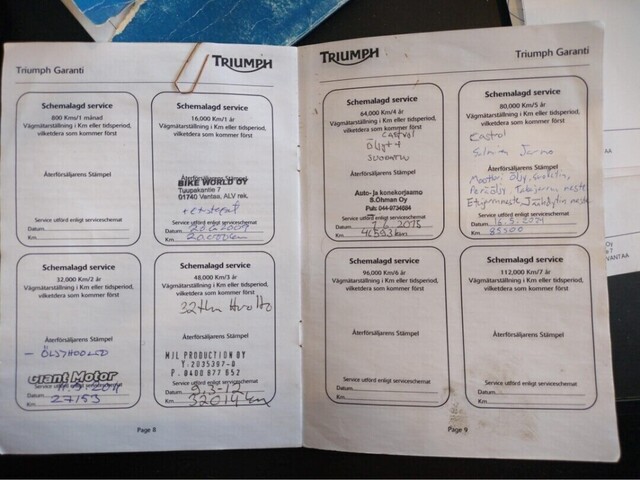 Triumph Garanti
TRIUMPH
Schemalagd service
800 Km/1 månad
Vägmätarställning i Km eller tidsperiod,
vilketdera som kommer först
Återförsäljarens Stämpel
Service utförd enligt serviceschemat
Datum
Km
Schemalagd service
16,000 Km/1 år
Vägmätarställning i Km eller tidsperiod,
vilketdera som kommer först
Återförsäljarens Stämpel
BIKE WORLD OY
Tuupakantie 7
01740 Vantaa, ALV rek.
Service utförd enligt serviceschemat
Datum
Km
Schemalagd service
32,000 Km/2 år
Vägmätarställning i Km eller tidsperiod,
vilketdera som kommer först
Återförsäljarens Stämpel
Giant Motor
Service utförd enligt serviceschemat
Datum
Km 27153
Schemalagd service
48,000 Km/3 år
Vägmätarställning i Km eller tidsperiod,
vilketdera som kommer först
32tkm Huolto
Återförsäljarens Stämpel
MJL PRODUCTION OY
Y.2035397-0
P. 0400 677 652
Service utförd enligt serviceschemat
Datum
Km 32014 km
Page 8
TRIUMPH
Triumph Garanti
Schemalagd service
64,000 Km/4 år
Vägmätarställning i Km eller tidsperiod,
vilketdera som kommer först
CASTROL
Återförsäljarens Stämpel
Auto- ja konekorjaamo
S.Öhman Oy
Puh: 044-0734684
Service utförd enligt serviceschemat
Datum
Km 46593 km
Schemalagd service
80,000 Km/5 år
Vägmätarställning i Km eller tidsperiod,
vilketdera som kommer först
Castrol
Återförsäljarens Stämpel
Service utförd enligt serviceschemat
Datum
Km 85500
Schemalagd service
96,000 Km/6 år
Vägmätarställning i Km eller tidsperiod,
vilketdera som kommer först
Återförsäljarens Stämpel
Service utförd enligt serviceschemat
Datum
Km
Schemalagd service
112,000 Km/7 år
Vägmätarställning i Km eller tidsperiod,
vilketdera som kommer först
Återförsäljarens Stämpel
Service utförd enligt serviceschemat
Datum
Km
Page 9
Oy
VANTAA